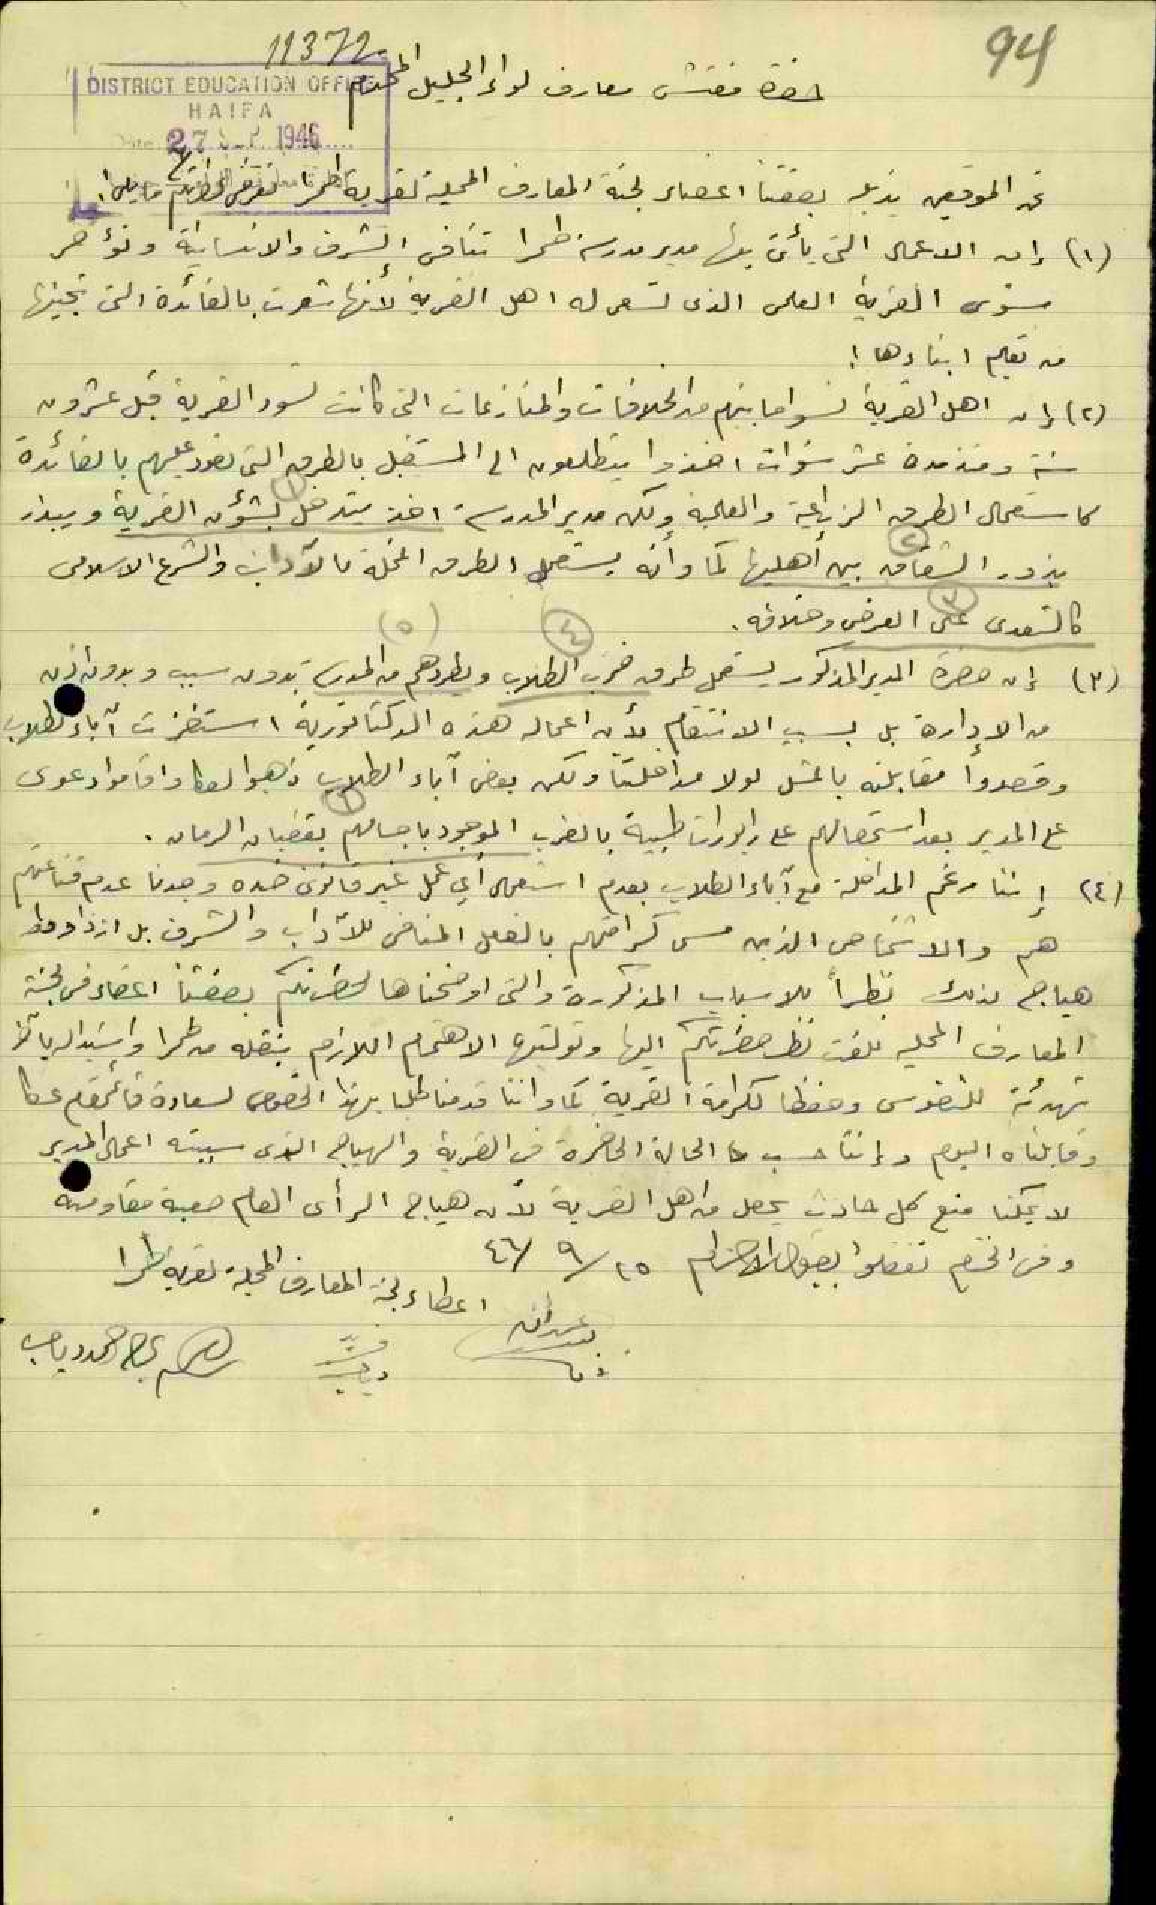 94
11372
DISTRICT EDUCATION OFFICE
HAIFA
Date 27 SEP 1946
حضرة مفتش معارف لواء الجليل المحترم
نحن الموقعين بذيله بصفتنا اعضاء لجنة المعارف المحلية لقرية طمرا نعرض لحضرتكم ما يلي:
(١) إن الاعمال التي يأتي بها مدير مدرسة طمرا تنافي الشرف والانسانية وتؤخر
مستوى القرية العلمي الذي تسعى له اهل القرية لأنها شعرت بالفائدة التي تجنيها
من تعليم ابناءها:
(٢) إن اهل القرية نسوا ما بينهم من الخلافات والمنازعات التي كانت تسود القرية قبل عشرون
سنة ومنذ مدة عشر سنوات اخذوا يتطلعون الى المستقبل بالطرق التي تعود عليهم بالفائدة
كاستعمال الطرق الزراعية والعلمية ولكن مدير المدرسة اخذ يتدخل بشؤون القرية ويبذر
١
بذور الشقاق بين أهليها كما وأنه يستعمل الطرق المخلة بالآداب والشرع الاسلامي
٢
كالتعدي على العرض وخلافه.
٣
(٣) إن حضرة المدير المذكور يستعمل طرق ضرب الطلاب ويطردهم من المدرسة بدون سبب وبدون اذن
٤ (٥)
من الإدارة بل بسبب الانتقام لأن اعماله هذه الدكتاتورية استفزت آباء الطلاب
وقصدوا مقابلته بالمثل لولا مداخلتنا ولكن بعض آباء الطلاب ذهبوا لعكا واقاموا دعوى
على المدير بعد استحصالهم على رابورات طبية بالضرب الموجود باجسامهم بقضبان الرمان.
٦
(٤) إننا رغم المداخلة مع آباء الطلاب بعدم استعمال أي عمل غير قانوني ضده وجدنا عدم قناعتهم
هم والاشخاص الذين مس كرامتهم بالعمل المنافي للآداب والشرف بل ازدادوا
هياج لذلك نظراً للاسباب المذكورة والتي اوضحناها لحضرتكم بصفتنا اعضاء في لجنة
المعارف المحلية نلفت نظر حضرتكم اليها وتوليها الاهتمام اللازم بنقله من طمرا واستبداله بآخر
تهدئة للنفوس وحفظا لكرامة القرية كما واننا قدمنا طلبا بهذا الخصوص لسعادة قائمقام عكا
وقابلناه اليوم وإننا حسب الحالة الحاضرة في القرية والهياج الذي سببته اعمال المدير
لا يمكننا منع كل حادث يحصل من اهل القرية لأن هياج الرأى العام صعبة مقاومته
وفي الختام تفضلوا بقبول الاحترام ٢٥/٩/٤٦
اعضاء لجنة المعارف المحلية لقرية طمرا